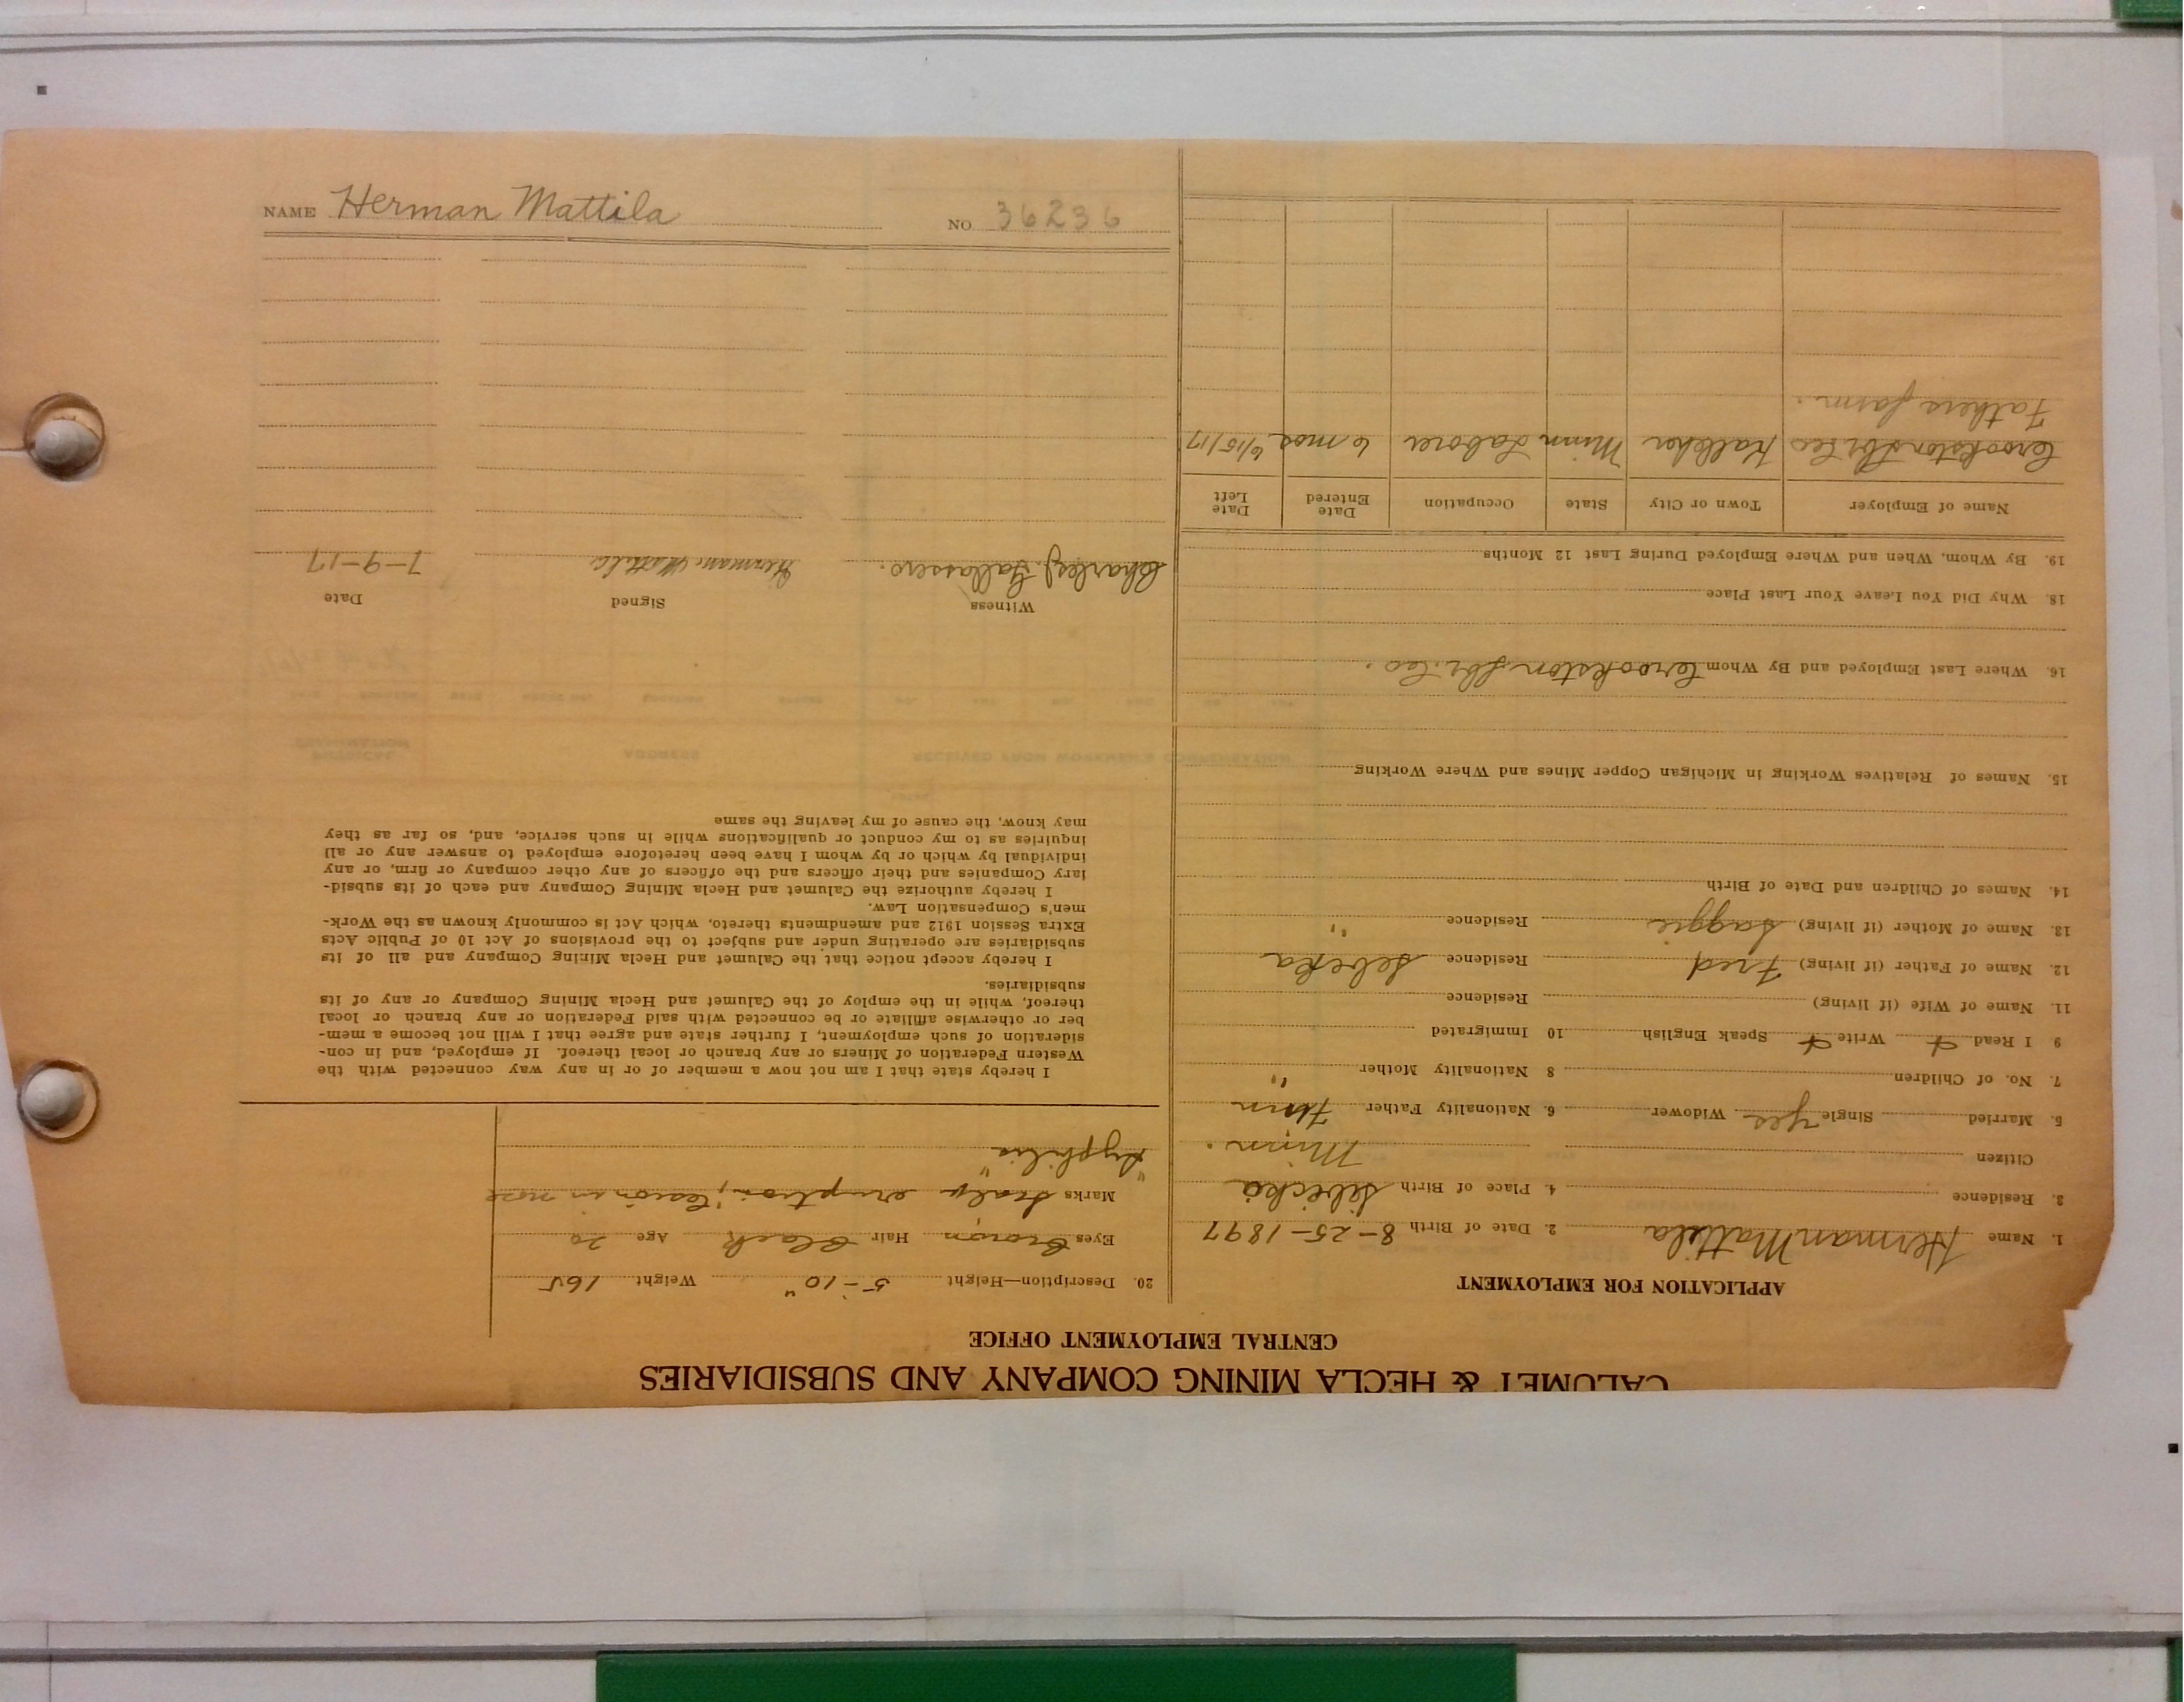 NAME Herman Mattila NO 36236
CALUMET & HECLA MINING COMPANY AND SUBSIDIARIES
CENTRAL EMPLOYMENT OFFICE
APPLICATION FOR EMPLOYMENT
1. Name Herman Mattila 2. Date of Birth 8-25-1897
3. Residence 4. Place of Birth Sebeka
Citizen Minn.
5. Married Single yes Widower 6. Nationality Father Finn
7. No. of Children 8 Nationality Mother "
9 I Read Write Speak English 10 Immigrated
11. Name of Wife (if living) Residence
12. Name of Father (if living) Fred Residence Sebeka
13. Name of Mother (if living) Residence "
14. Names of Children and Date of Birth
15. Names of Relatives Working in Michigan Copper Mines and Where Working
16. Where Last Employed and By Whom Crookston Lbr. Co.
18. Why Did You Leave Your Last Place
19. By Whom, When and Where Employed During Last 12 Months
Name of Employer Town or City State Occupation Date Entered Date Left
Crookston Lbr Co Kelliher Minn Laborer 6 mos 6/15/17
Fathers farm.
20. Description—Height 5-10" Weight 165
Eyes Brown Hair Black Age 20
Marks Scalp eruption; lesion in nose
"Syphilis"
I hereby state that I am not now a member of or in any way connected with the
Western Federation of Miners or any branch or local thereof. If employed, and in con-
sideration of such employment, I further state and agree that I will not become a mem-
ber or otherwise affiliate or be connected with said Federation or any branch or local
thereof, while in the employ of the Calumet and Hecla Mining Company or any of its
subsidiaries.
I hereby accept notice that the Calumet and Hecla Mining Company and all of its
subsidiaries are operating under and subject to the provisions of Act 10 of Public Acts
Extra Session 1912 and amendments thereto, which Act is commonly known as the Work-
men's Compensation Law.
I hereby authorize the Calumet and Hecla Mining Company and each of its subsid-
iary Companies and their officers and the officers of any other company or firm, or any
individual by which or by whom I have been heretofore employed to answer any or all
inquiries as to my conduct or qualifications while in such service, and, so far as they
may know, the cause of my leaving the same
Witness Signed Date
Charles J. Gallassero. Herman Mattila 7-9-17